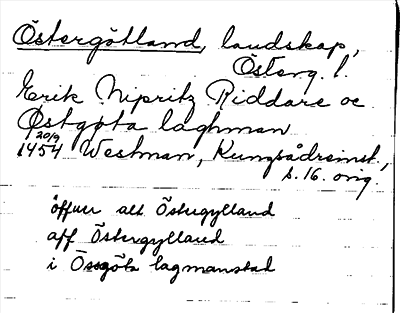 Östergötland, landskap,
Österg. l.
Erik Nipritz Riddare oc
Østgøta laghman
20/9
1454 Westman, Kungsådreinst,
s. 16. orig.
öffuer alt Östergylland
aff Östergylland
i Ösgöta lagmanstad